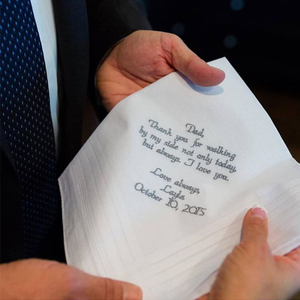 Dad,
Thank you for walking
by my side not only today,
but always. I love you.
Love always,
Layla
October 10, 2015